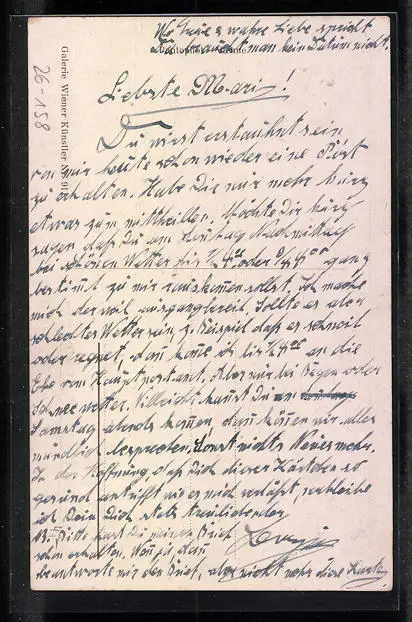 Wo treue & wahre Liebe spricht
Da braucht man kein Datum nicht.
Galerie Wiener Künstler No. 91
26-158
Liebste Mari!
Du wirst erstauhnt sein
von mir heute schon wieder eine Post
zu erhalten. Habe Dir nur mehr kurz
etwas zum mittheillen. Möchte Dir kurz
sagen daß Du am Sonntag Nachmittag
bei schönen Wetter bis 1/2 4 oder 3/4 4 ganz
bestimt zu mir rauskomen sollst. Ich mache
mich derweil ausgangbereit. Sollte es aber
schlechtes Wetter sein, z. Beispiel daß es schneit
oder regnet, dann kome ich bis 1/2 4 an die
Eke vom Hauptpostamt. Aber nur bei Regen oder
Schneewetter. Villeicht kanst Du
Samstag abends komen dann könen wir alles
mündlich besprechen. Sonst nichts Neues mehr.
In der Hoffnung, daß Dich dieses Kärtchen so
gesund antrifft wie es mich verläßt, verbleibe
ich Dein Dich stets treuliebender
NB. Bitte hast Du meinen Brief
schon erhalten. Wen ja, dann
beantworte mir den Brief, aber nicht mehr diese Karte